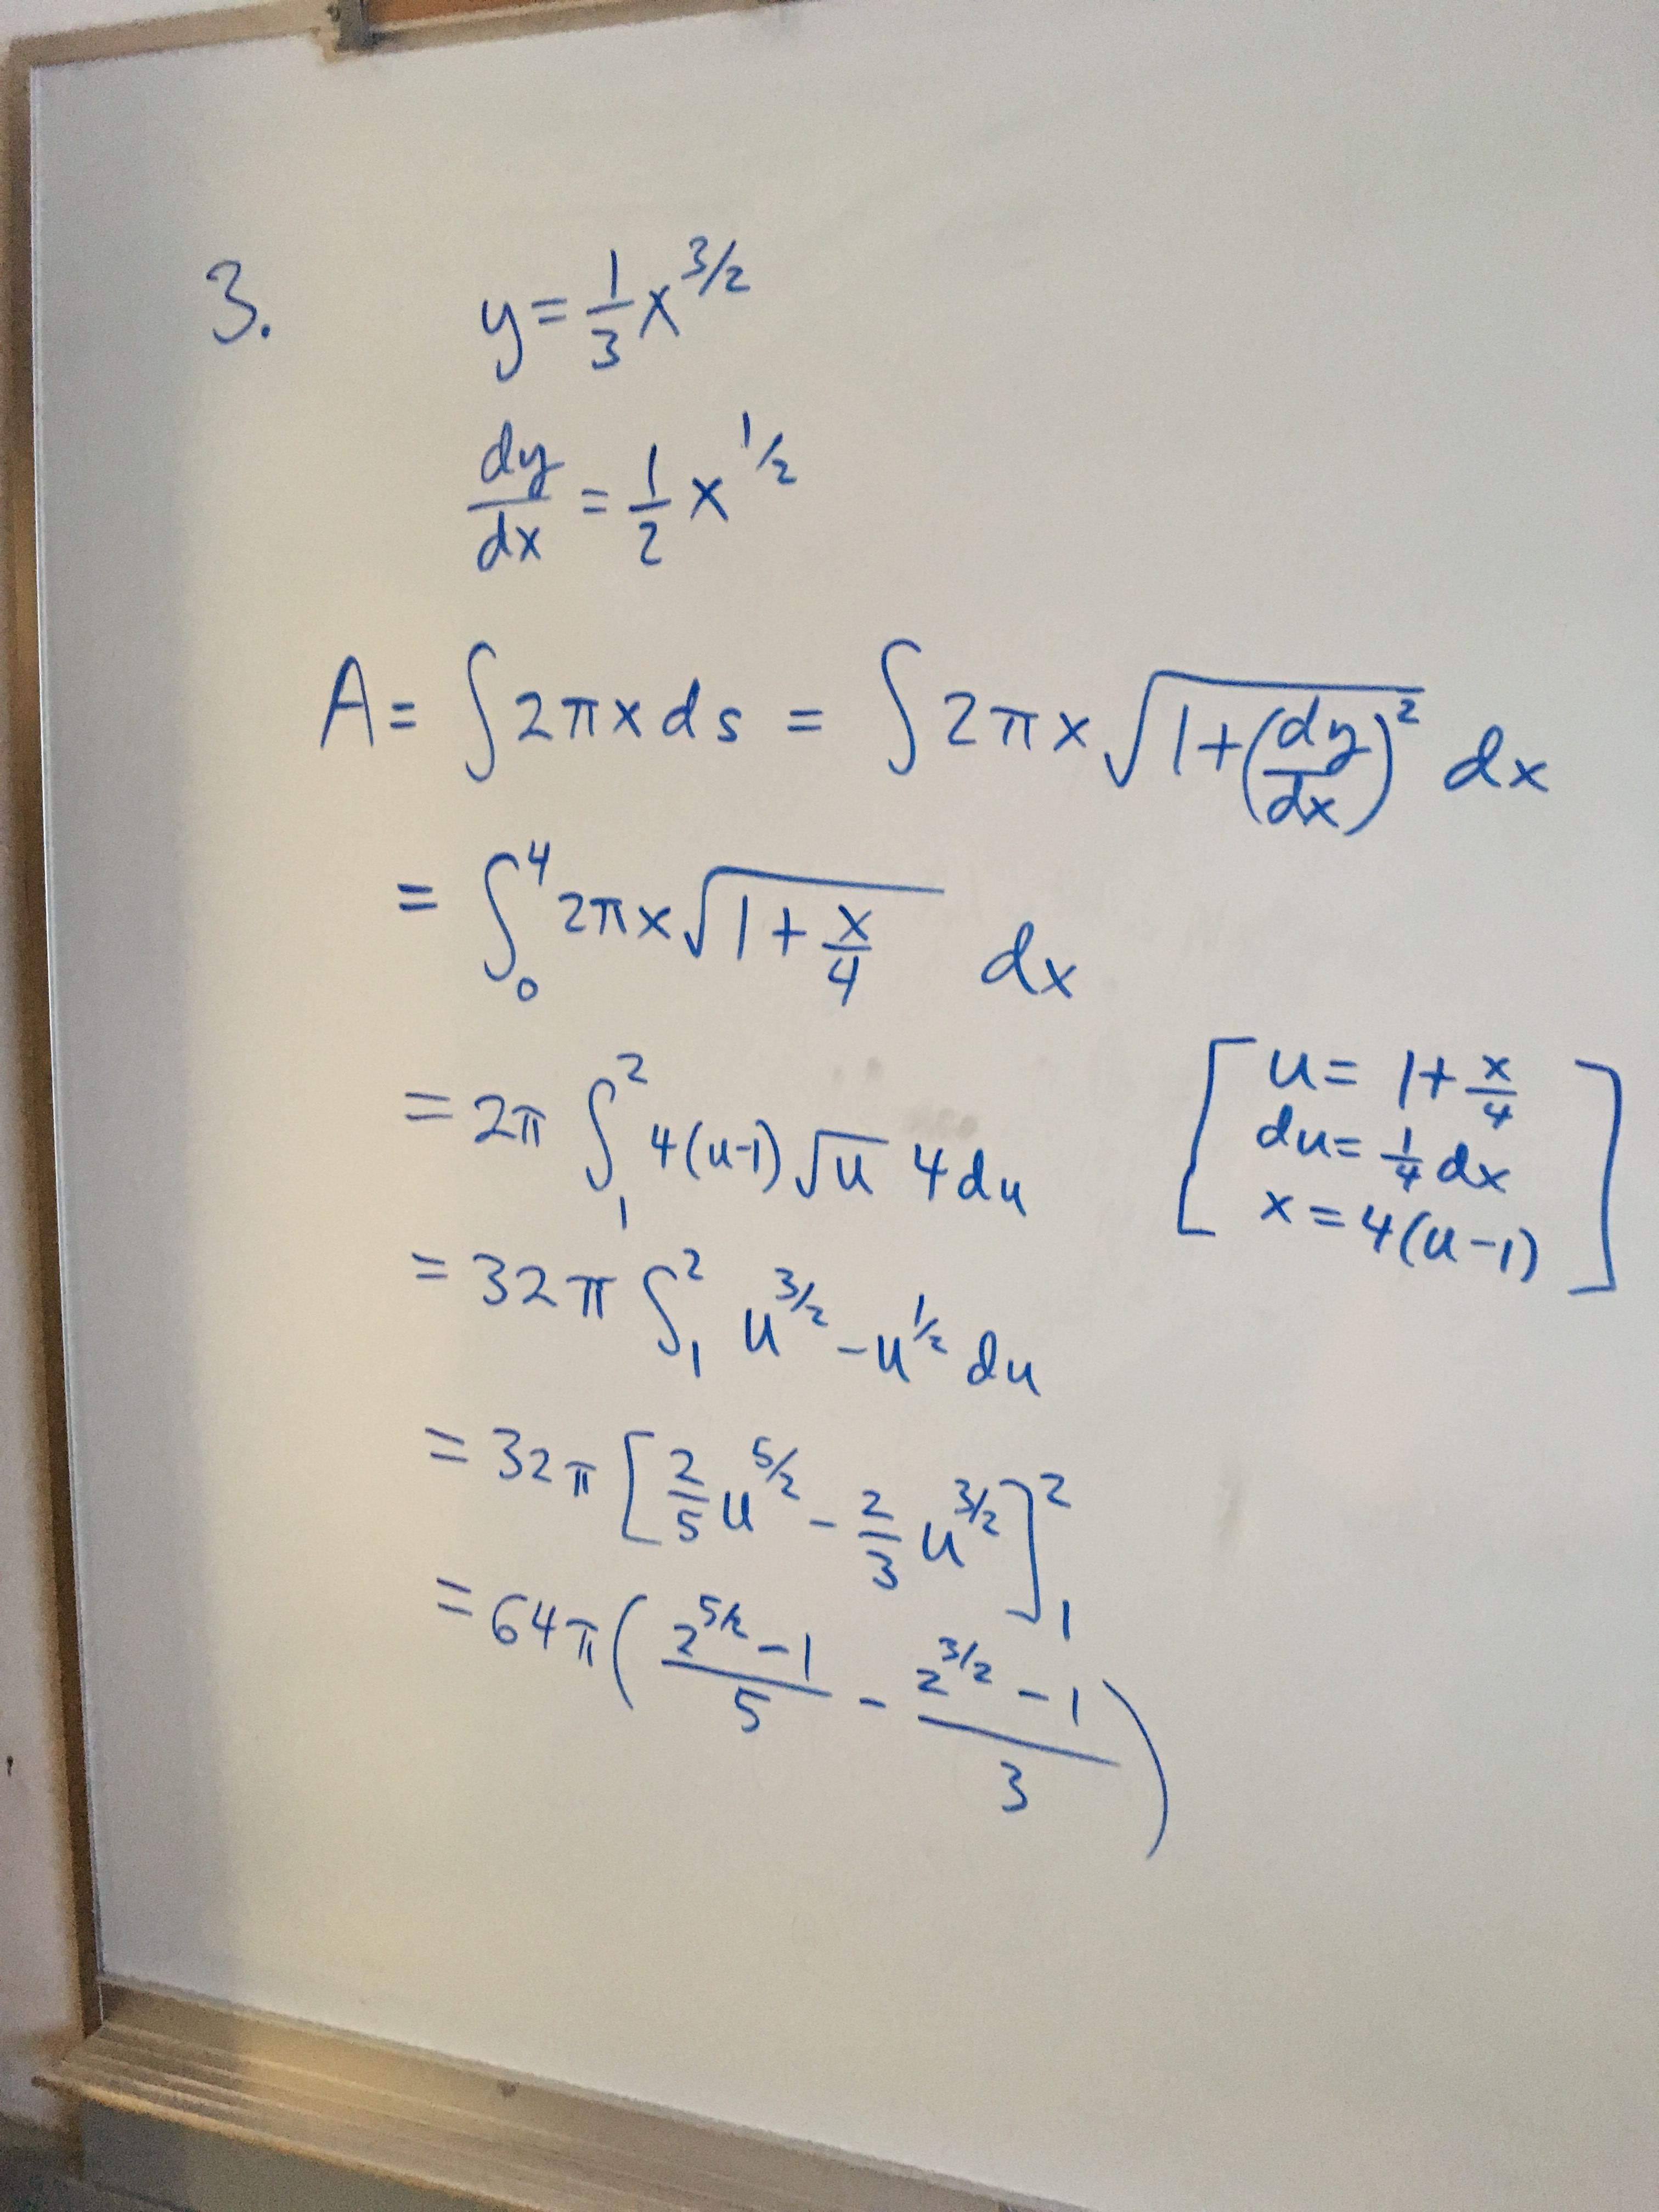 3. y = 1/3 x^{3/2}
dy/dx = 1/2 x^{1/2}
A = ∫ 2πx ds = ∫ 2πx √(1+(dy/dx)^2) dx
= ∫_0^4 2πx √(1 + x/4) dx
= 2π ∫_1^2 4(u-1) √u 4 du
[ u = 1 + x/4
du = 1/4 dx
x = 4(u-1) ]
= 32π ∫_1^2 u^{3/2} - u^{1/2} du
= 32π [ 2/5 u^{5/2} - 2/3 u^{3/2} ]_1^2
= 64π ( (2^{5/2} - 1)/5 - (2^{3/2} - 1)/3 )